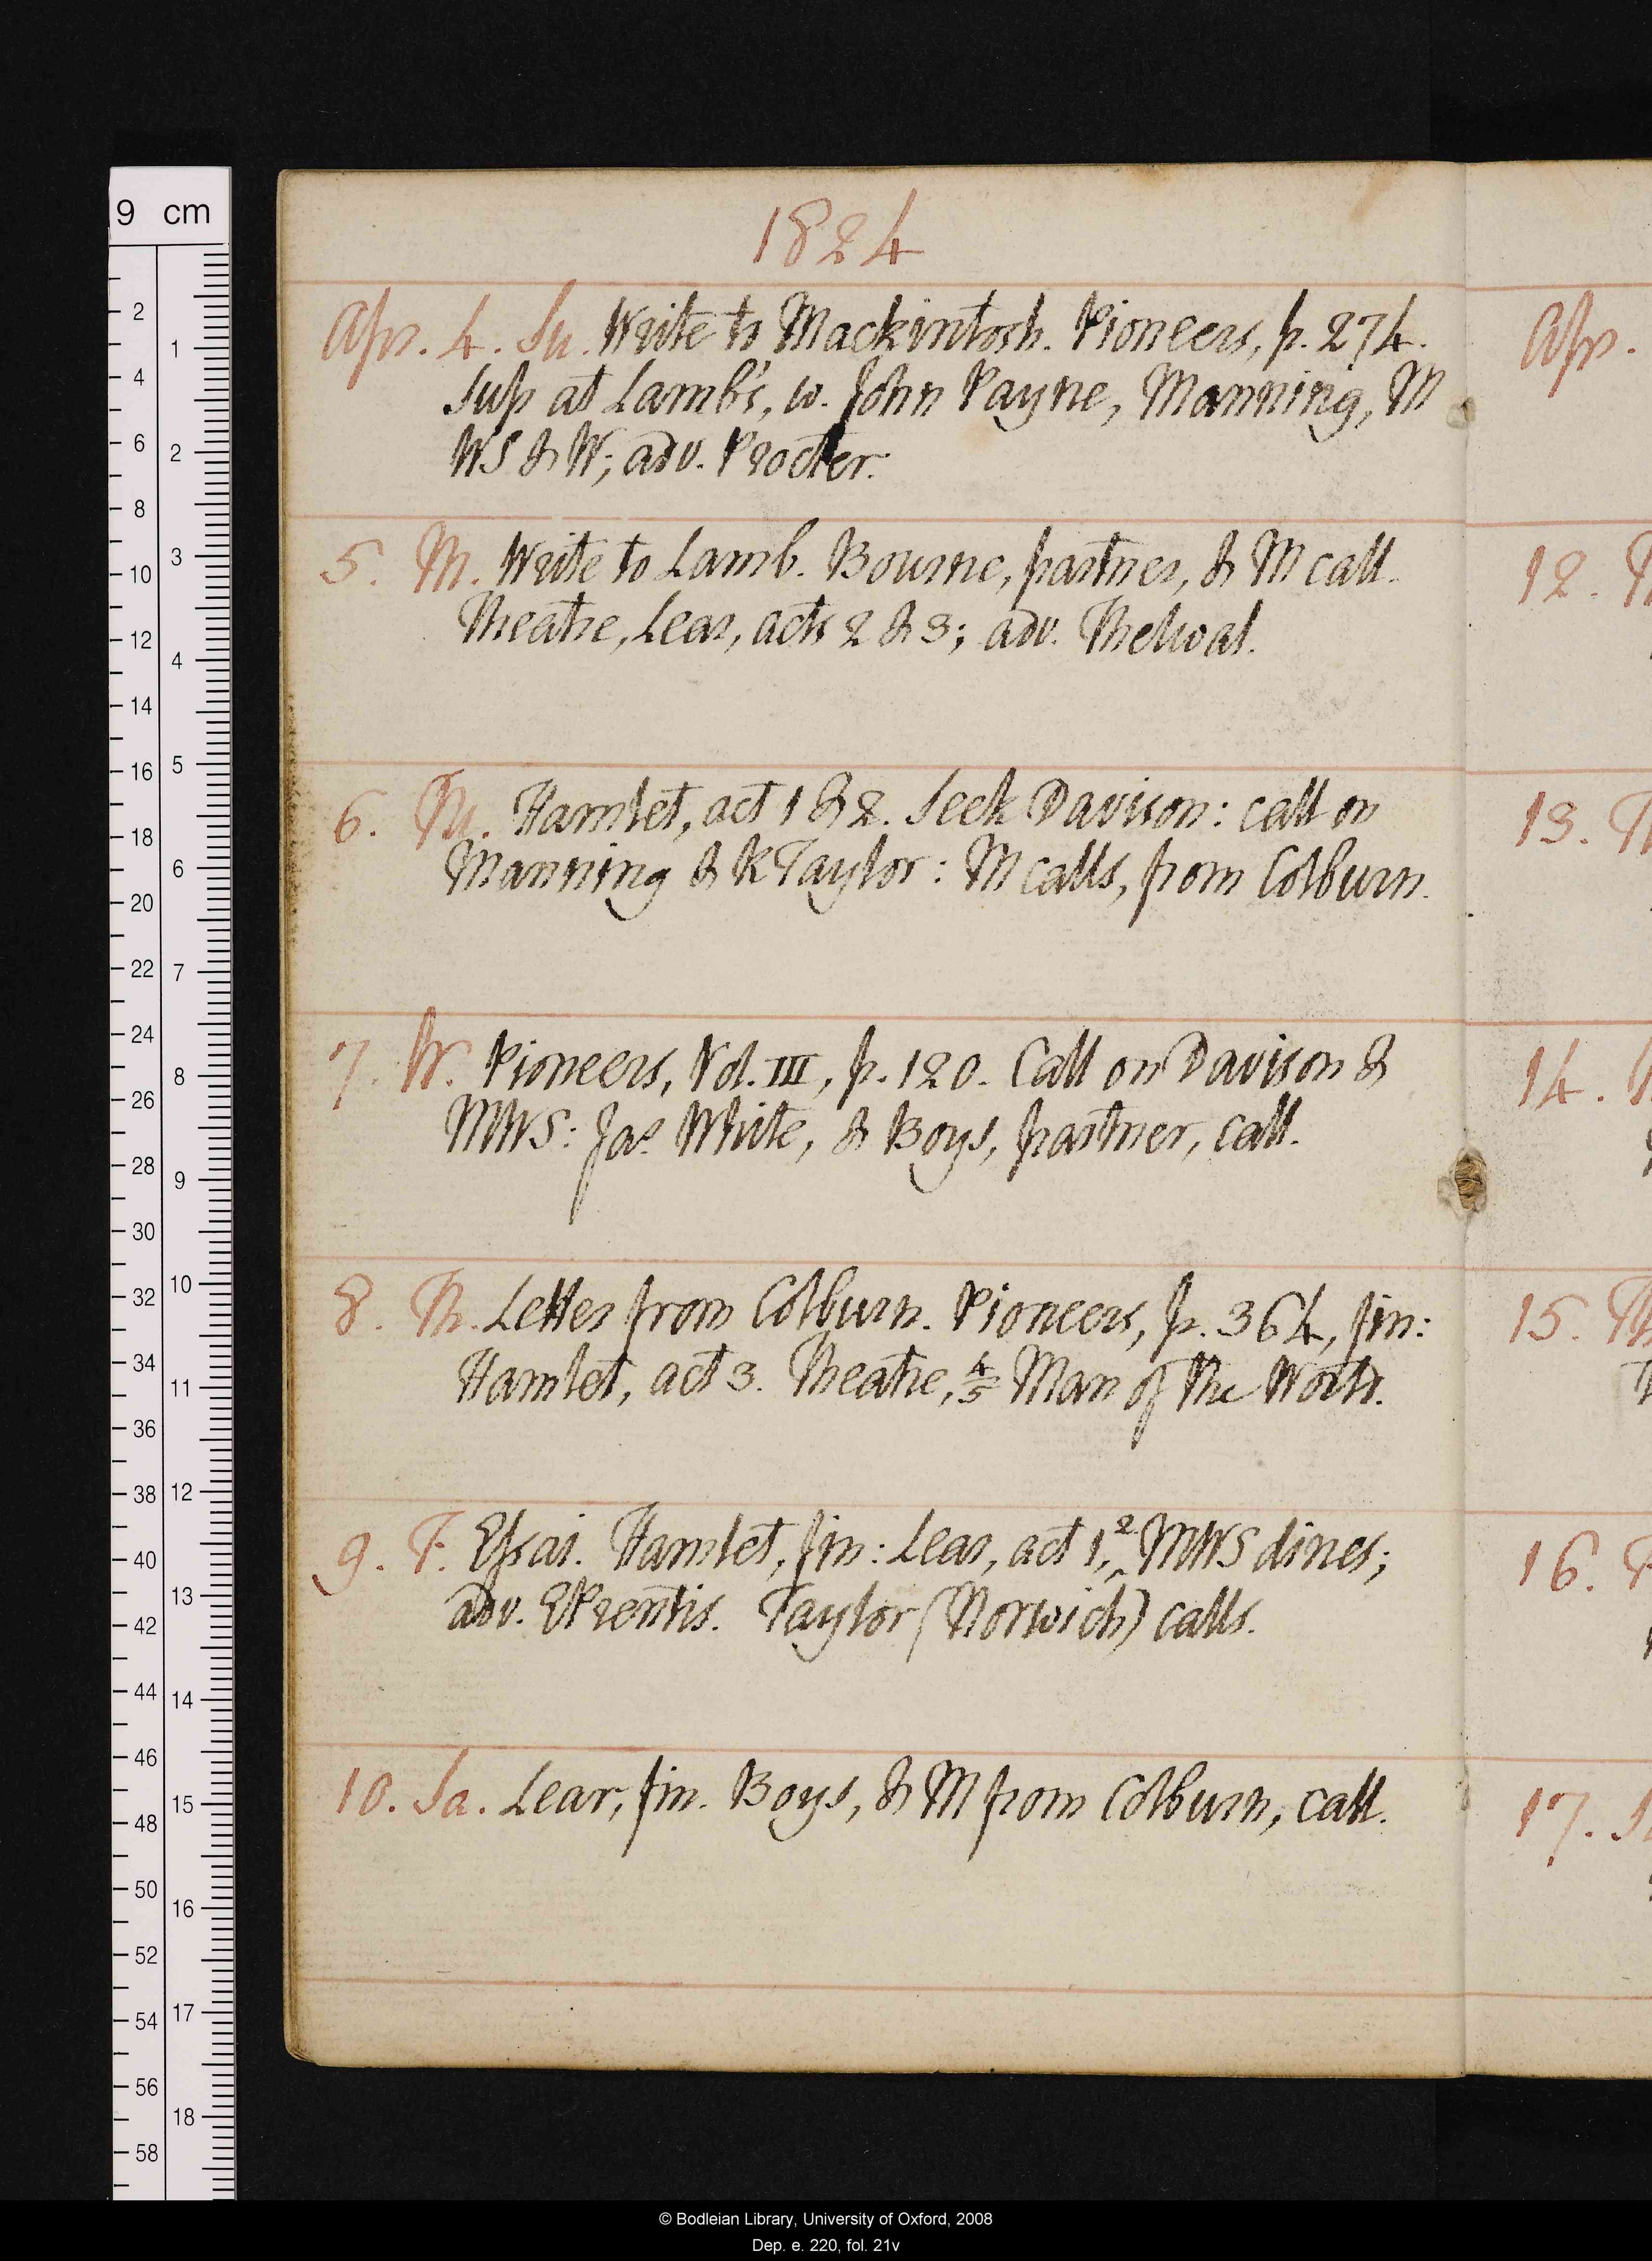 1824
Apr. 4. Su. Write to Mackintosh. Pioneers, p. 274.
Sup at Lamb's, w. John Payne, Manning, M
WS & W; adv. Procter.
5. M. Write to Lamb. Bourne, partner, & M call.
Theatre, Lear, acts 2 & 3; adv. Thelwal.
6. Tu. Hamlet, act 1 & 2. Seek Davison: call on
Manning & R Taylor: M calls, from Colburn.
7. W. Pioneers, Vol. III, p. 120. Call on Davison &
MWS: Jas White, & Boys, partner, call.
8. Th. Letter from Colburn. Pioneers, p. 364, fin:
Hamlet, act 3. Theatre, 4/5 Man of the World.
9. F. Essai. Hamlet, fin: Lear, act 1, 2 MWS dines;
adv. E Prentis. Taylor (Norwich) calls.
10. Sa. Lear, fin. Boys, & M from Colburn, call.
Apr.
12.
13.
14.
15. Th
16.
17.
9 cm
2 4 6 8 10 12 14 16 18 20 22 24 26 28 30 32 34 36 38 40 42 44 46 48 50 52 54 56 58
1 2 3 4 5 6 7 8 9 10 11 12 13 14 15 16 17 18
© Bodleian Library, University of Oxford, 2008
Dep. e. 220, fol. 21v